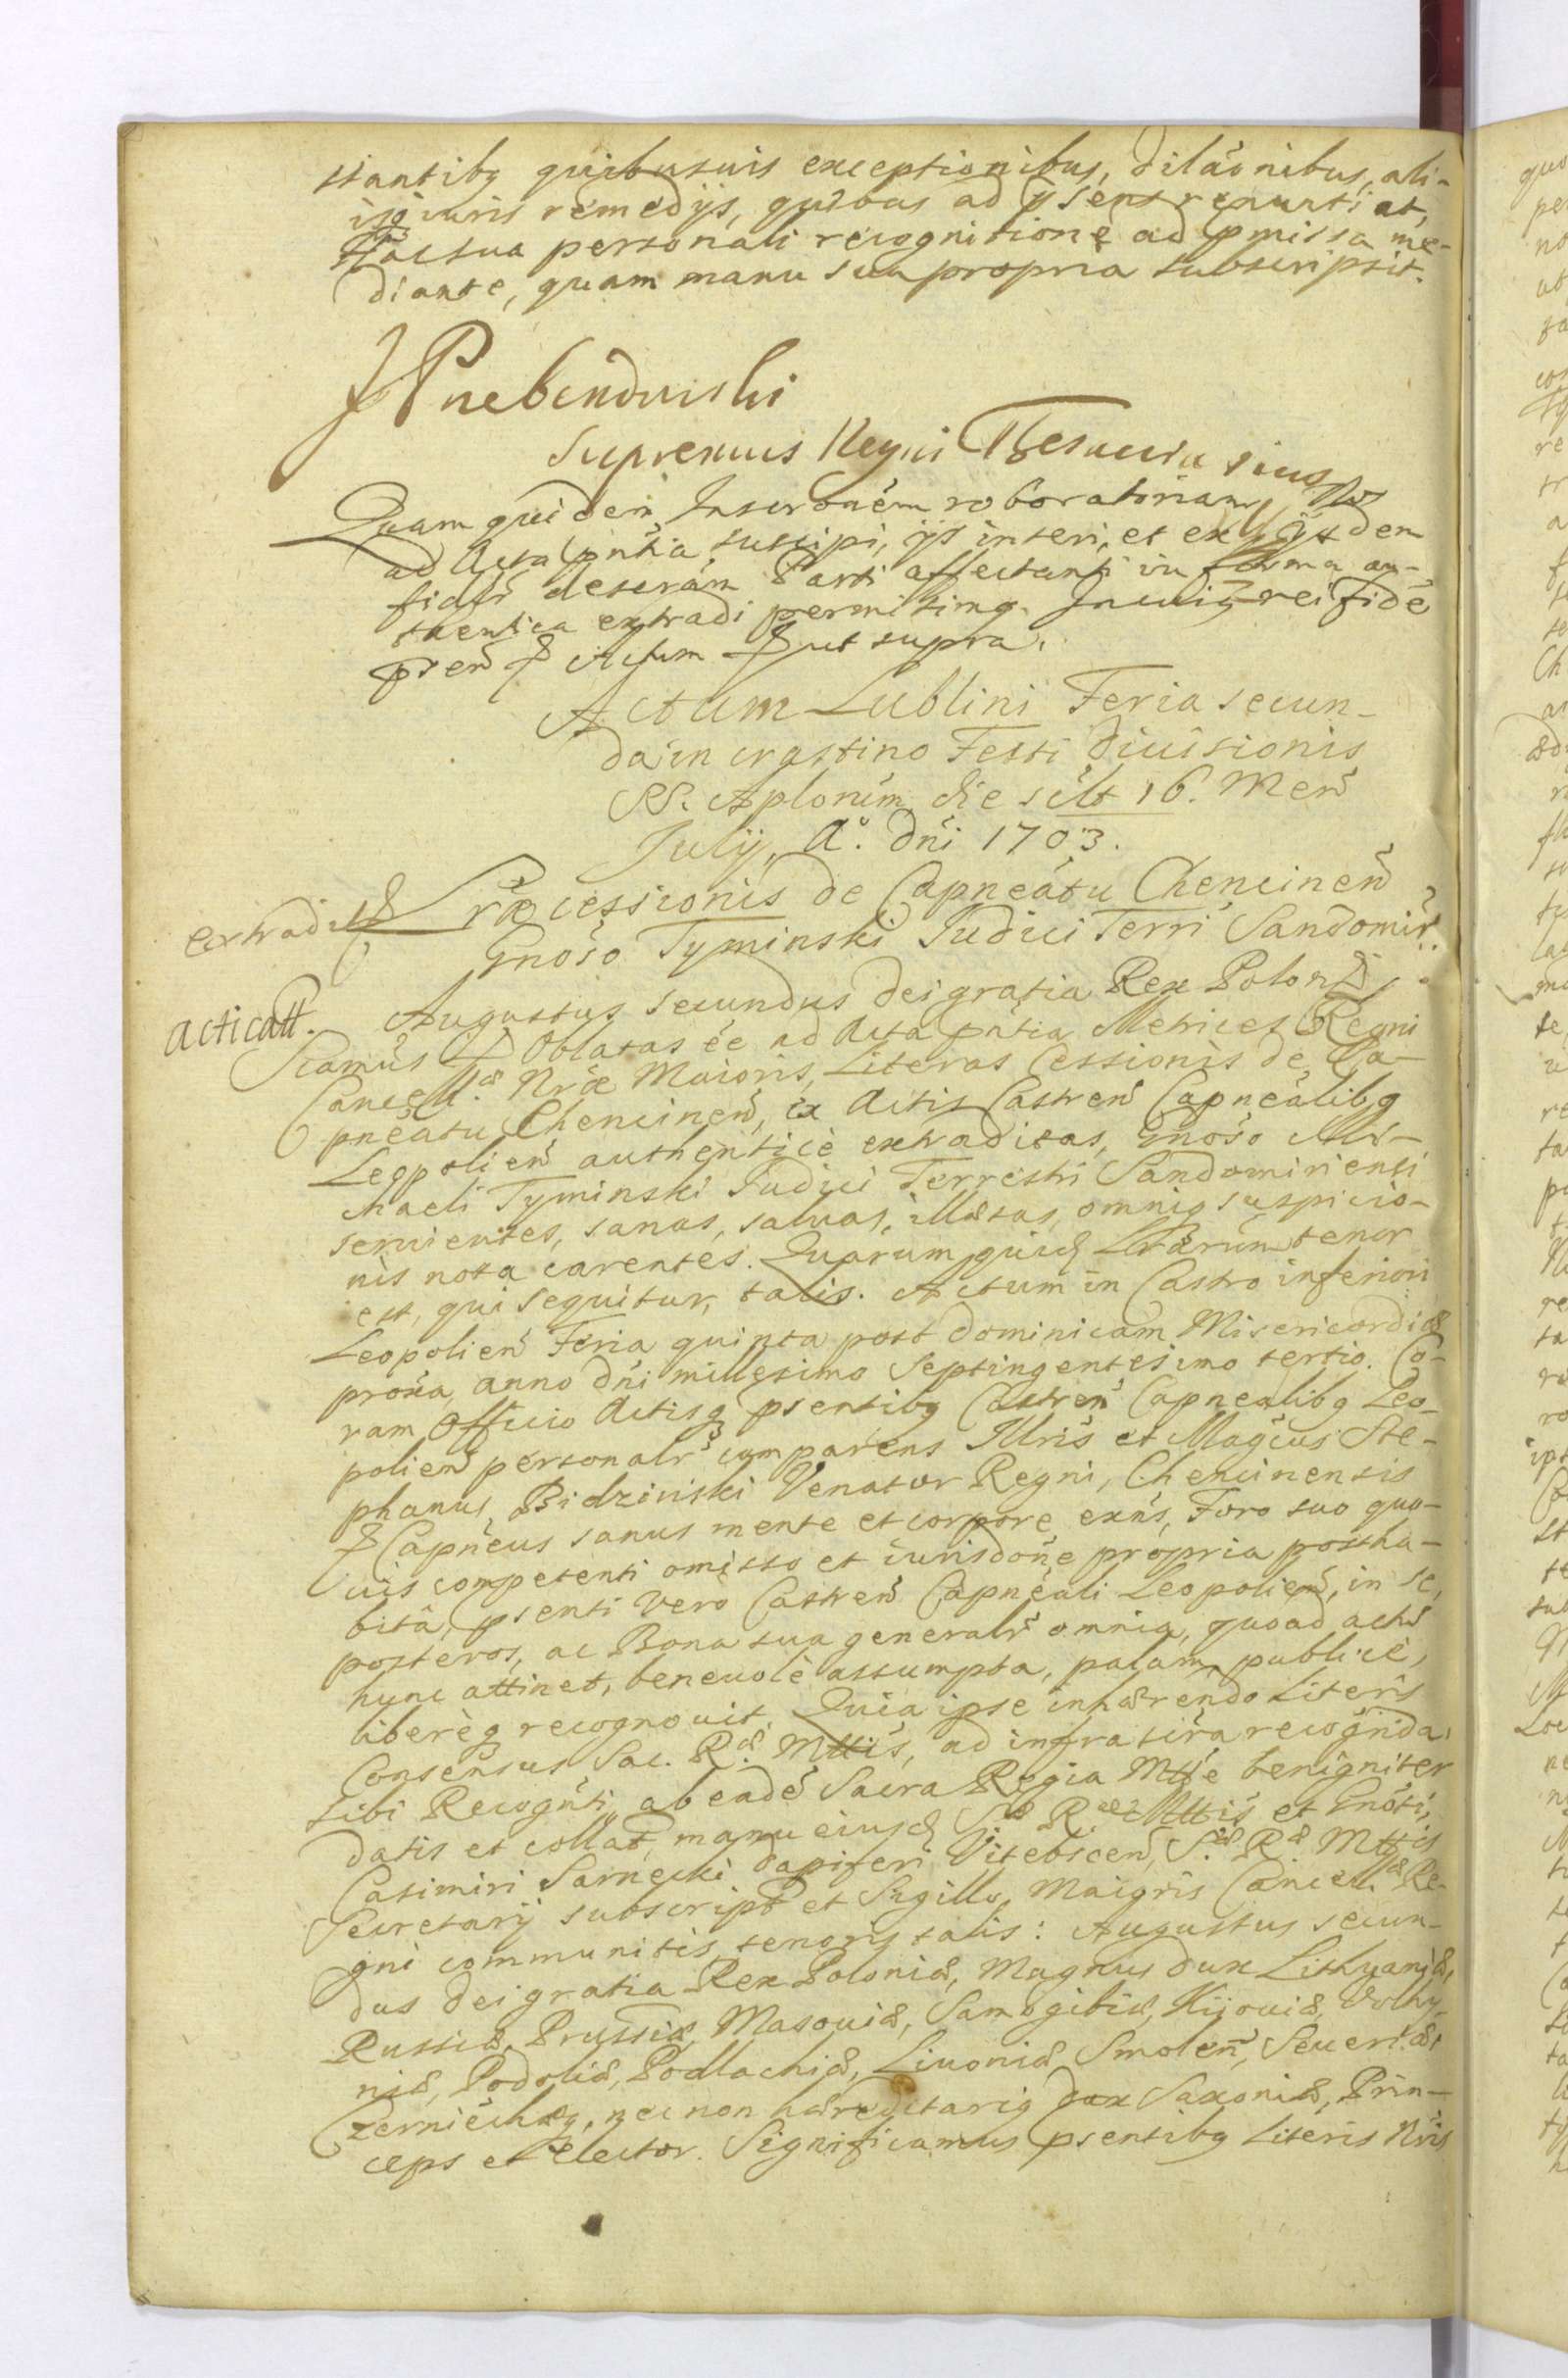 stantibg quibusuis exceptionibus, dilaonibus, ali-
isq iuris remedijs, quibus ad psens renunciat,
Hac sua personali recognitione ad pmissa me-
diante, quam manu sua propria subscripsit.
J Prebendowski
Supremus Regni Thesaurarius
Quam quidem Inscronem roboratoriam Nos
ad Acta pntia suscipi, ijs inseri, et ex ijsdem
fideli descram Parti affectanti in forma au-
thentica extradi permisimq. In cuiq rei fidē
psen Actum ut supra.
Actum Lublini Feria secun-
da in crastino Festi divisionis
SS. Aplorum die scilt 16. Men
July, Aº. dni 1703.
extradit
Oblatæ cessionis de Capneatu Chencinen
Gnoso Tyminski Judici Terri Sandomir.
acticatt.
Augustus secundus Dei gratia Rex Polon
Scamus Oblatas ēe ad Acta pntia Metrices Regni
Cancell.æ Nræ Maioris, Literas Cessionis de Ca-
pneatu Chencinen, ex Actis Castren Capnealibq
Leopolien authenticè extraditas, Gnoso Mi-
chaeli Tyminski Judici Terrestri Sandomiriensi
seruientes, sanas, saluas, illæsas, omniq suspicio-
nis nota carentes. Quarum quid Lrarum tenor
est, qui sequitur, talis. Actum in Castro inferiori
Leopolien Feria quinta post Dominicam Misericordiæ
proxa, anno dni millesimo septingentesimo tertio. Co-
ram Officio Actisq psentibq Castren Capnealibq Leo-
polien personalr comparens Illris et Magcus Ste-
phanus Bidzinski Venator Regni, Chencinensis
Capneus sanus mente et corpore exns, Foro suo quo-
uis competenti omisso et iurisdone propria postha-
bitâ, psenti verò Castren Capneali Leopolien, in se,
posteros, ac Bona sua generalr omnia, quoad actu
hunc attinet, beneuolè assumpta, palam, publicè,
liberèq recognouit. Quia ipse inhærendo Literis
Consensus Sac. R.æ Mttis, ad infra scra recognda,
sibi Recognti, ab eadē Sacra Regia Mtte benigniter
datis et collat, manu eiusd S.æ R.æ Mttis et Gnosi,
Casimiri Sarnecki Dapiferi Vitebscen, S.æ R.æ Mttis
Secretarij subscript et Sigillo, Maioris Cancell.æ Re-
gni communitis, tenoris talis: Augustus secun-
dus Dei gratia Rex Poloniæ, Magnus dux Lithuaniæ,
Russiæ, Prussiæ, Masouiæ, Samogitiæ, Kijouiæ, Volhy-
niæ, Podoliæ, Podlachiæ, Liuoniæ, Smolen, Seueriæ,
Czerniechæq, nec non hæreditariq dux Saxoniæ, Prin-
ceps et elector. Significamus psentibq Literis Nris